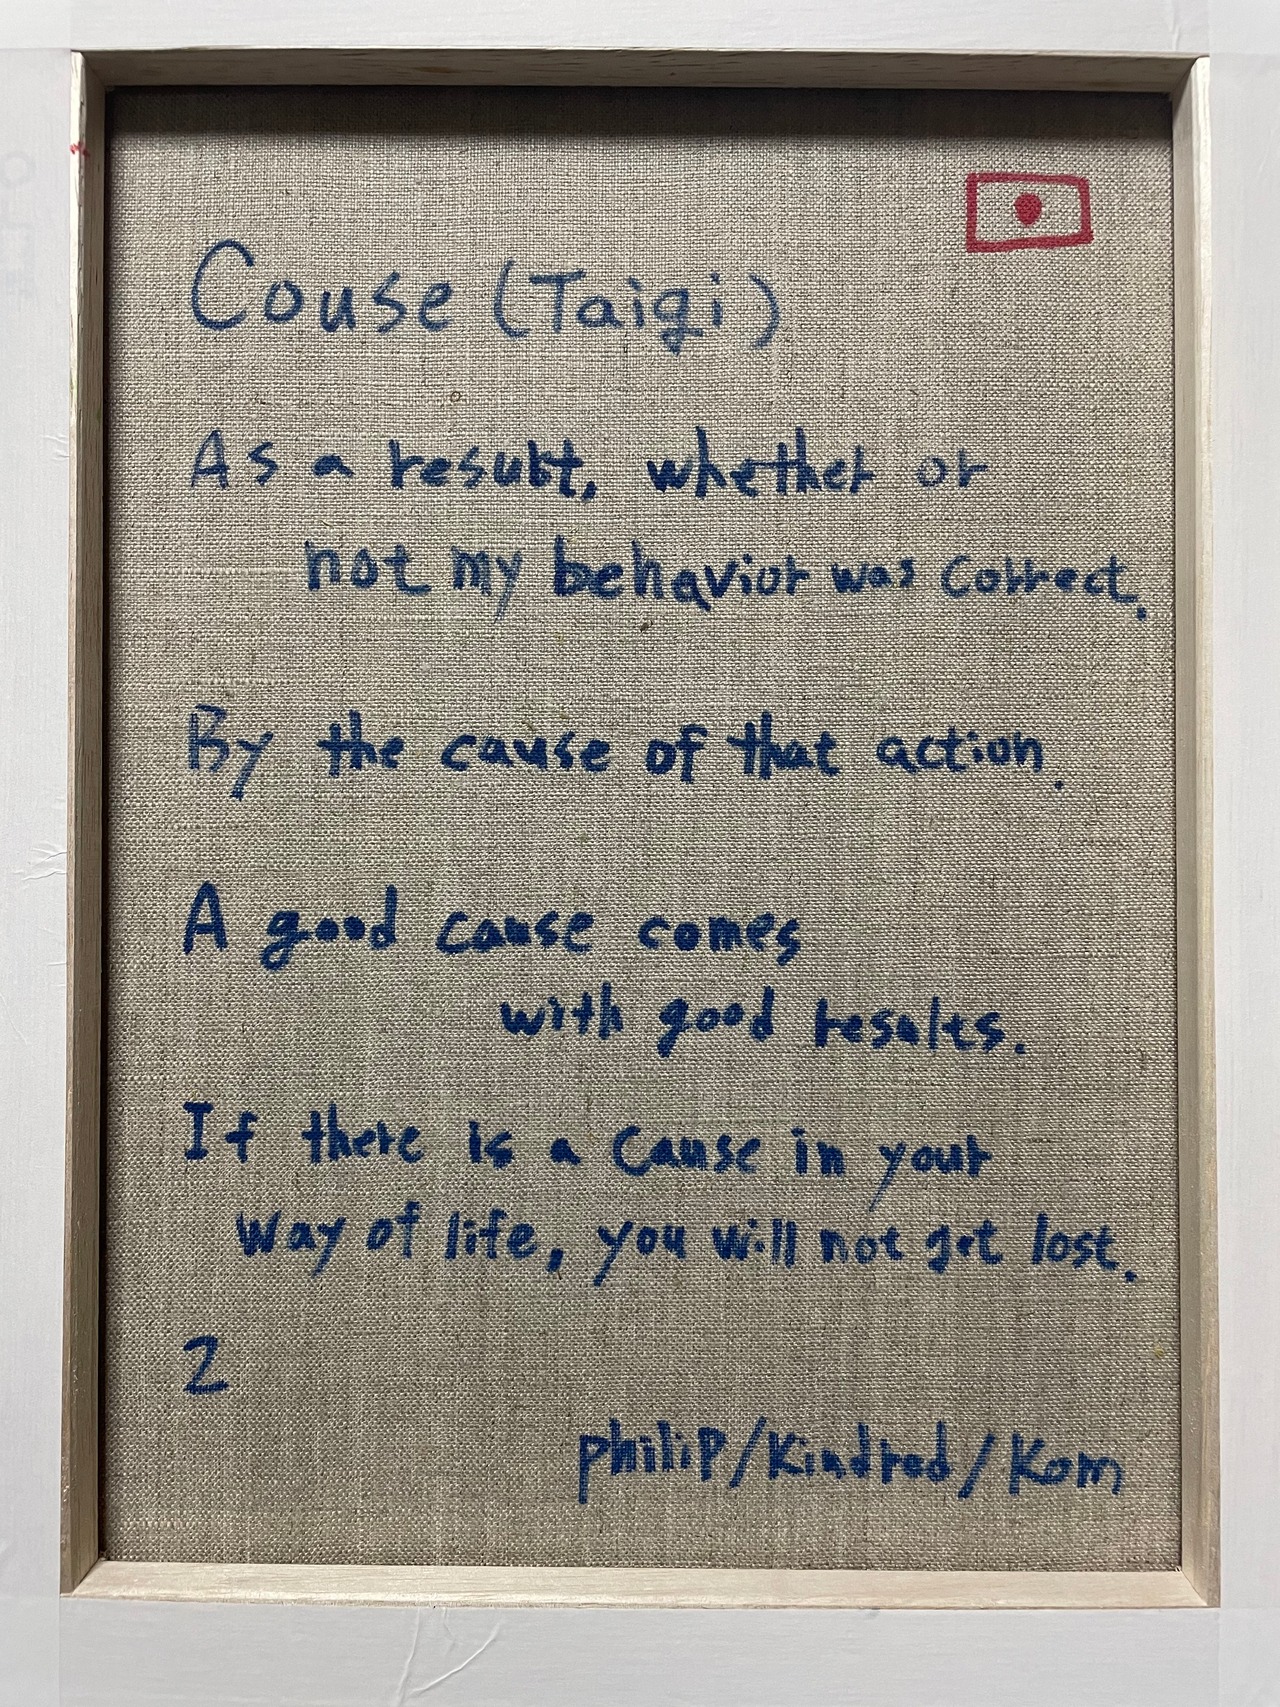 Couse (Taigi)
As a result, whether or
not my behavior was correct.
By the cause of that action.
A good cause comes
with good results.
If there is a cause in your
way of life, you will not get lost.
2
philip/Kindred/Kom